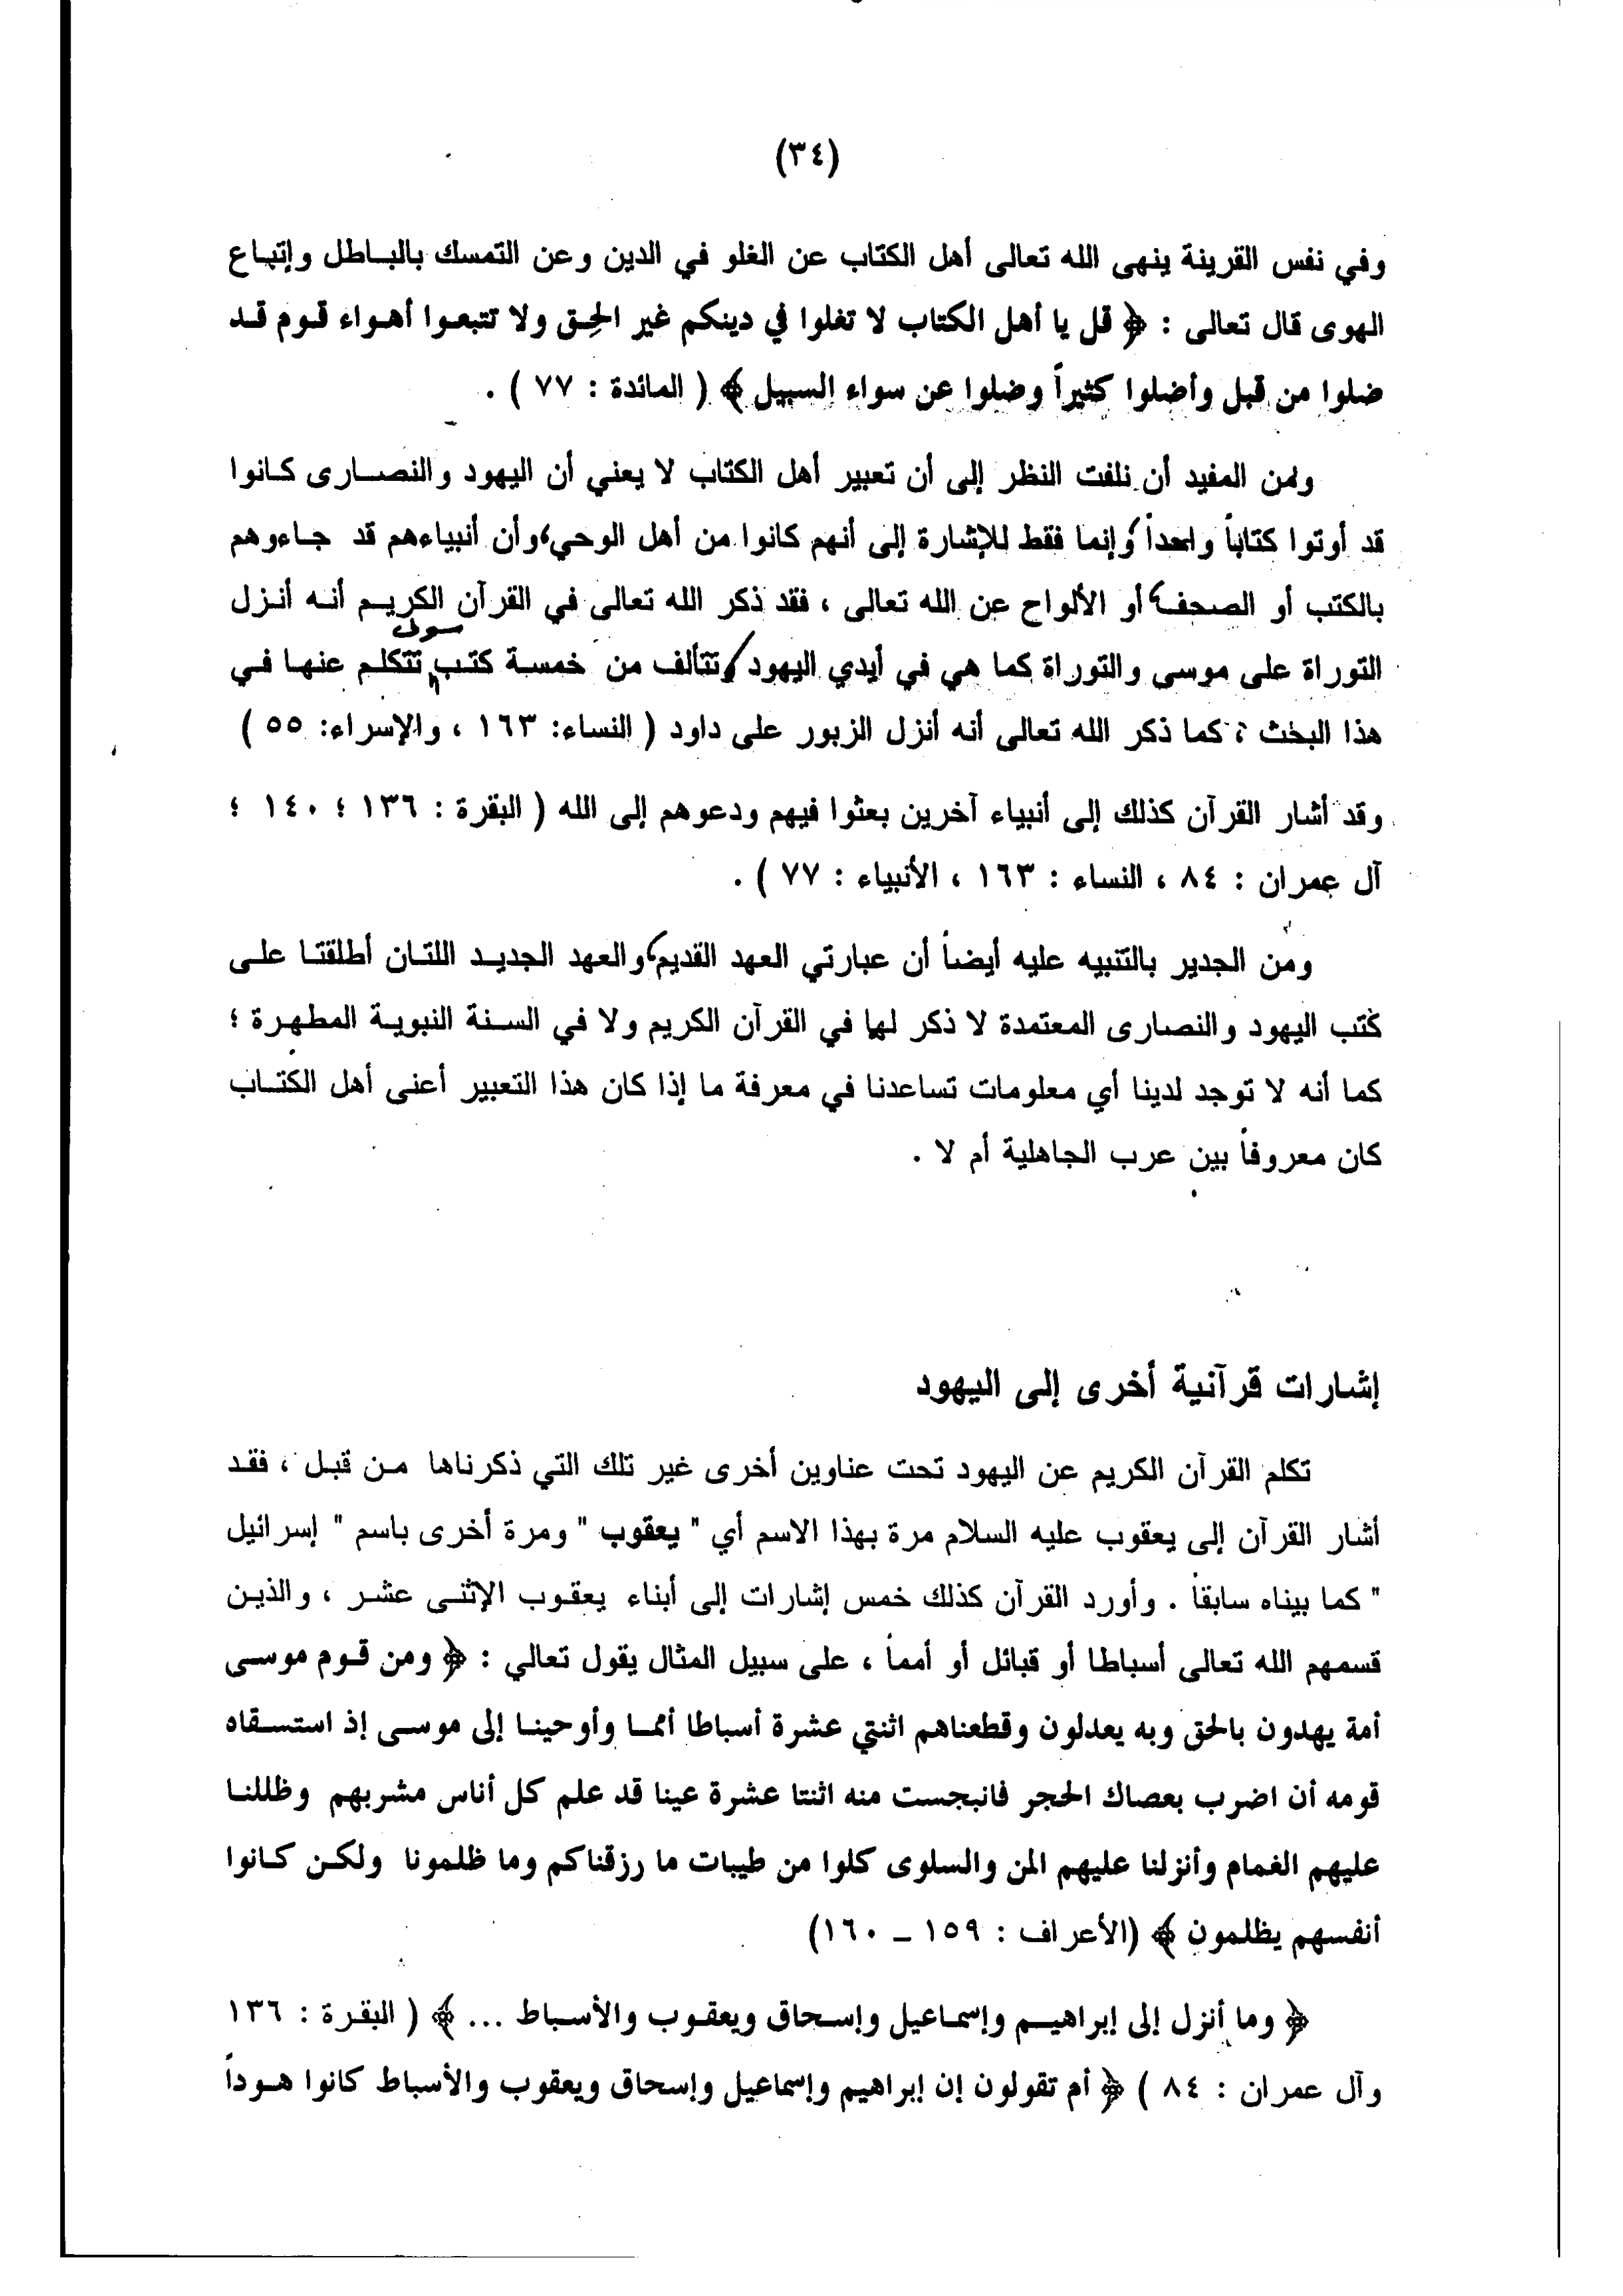 (٣٤)
وفي نفس القرينة ينهى الله تعالى أهل الكتاب عن الغلو في الدين وعن التمسك بالباطل وإتباع
الهوى قال تعالى : ﴿ قل يا أهل الكتاب لا تغلوا في دينكم غير الحق ولا تتبعوا أهواء قوم قد
ضلوا من قبل وأضلوا كثيراً وضلوا عن سواء السبيل ﴾ ( المائدة : ٧٧ ) .
ومن المفيد أن نلفت النظر إلى أن تعبير أهل الكتاب لا يعني أن اليهود والنصارى كانوا
قد أوتوا كتاباً واحداً، وإنما فقط للإشارة إلى أنهم كانوا من أهل الوحي، وأن أنبياءهم قد جاءوهم
بالكتب أو الصحف، أو الألواح عن الله تعالى ، فقد ذكر الله تعالى في القرآن الكريم أنه أنزل
سوف
التوراة على موسى والتوراة كما هي في أيدي اليهود وتتألف من خمسة كتب نتكلم عنها في
هذا البحث ؛ كما ذكر الله تعالى أنه أنزل الزبور على داود ( النساء: ١٦٣ ، والإسراء: ٥٥ )
وقد أشار القرآن كذلك إلى أنبياء آخرين بعثوا فيهم ودعوهم إلى الله ( البقرة : ١٣٦ ؛ ١٤٠ ؛
آل عمران : ٨٤ ، النساء : ١٦٣ ، الأنبياء : ٧٧ ) .
ومن الجدير بالتنبيه عليه أيضاً أن عبارتي العهد القديم، والعهد الجديد اللتان أطلقتا على
كتب اليهود والنصارى المعتمدة لا ذكر لها في القرآن الكريم ولا في السنة النبوية المطهرة ؛
كما أنه لا توجد لدينا أي معلومات تساعدنا في معرفة ما إذا كان هذا التعبير أعنى أهل الكتاب
كان معروفاً بين عرب الجاهلية أم لا .
إشارات قرآنية أخرى إلى اليهود
تكلم القرآن الكريم عن اليهود تحت عناوين أخرى غير تلك التي ذكرناها من قبل ، فقد
أشار القرآن إلى يعقوب عليه السلام مرة بهذا الاسم أي " يعقوب " ومرة أخرى باسم " إسرائيل
" كما بيناه سابقاً . وأورد القرآن كذلك خمس إشارات إلى أبناء يعقوب الإثنى عشر ، والذين
قسمهم الله تعالى أسباطا أو قبائل أو أمماً ، على سبيل المثال يقول تعالي : ﴿ ومن قوم موسى
أمة يهدون بالحق وبه يعدلون وقطعناهم اثنتي عشرة أسباطا أمما وأوحينا إلى موسى إذ استسقاه
قومه أن اضرب بعصاك الحجر فانبجست منه اثنتا عشرة عينا قد علم كل أناس مشربهم وظللنا
عليهم الغمام وأنزلنا عليهم المن والسلوى كلوا من طيبات ما رزقناكم وما ظلمونا ولكن كانوا
أنفسهم يظلمون ﴾ (الأعراف : ١٥٩ – ١٦٠)
﴿ وما أنزل إلى إبراهيم وإسماعيل وإسحاق ويعقوب والأسباط ... ﴾ ( البقرة : ١٣٦
وآل عمران : ٨٤ ) ﴿ أم تقولون إن إبراهيم وإسماعيل وإسحاق ويعقوب والأسباط كانوا هوداً